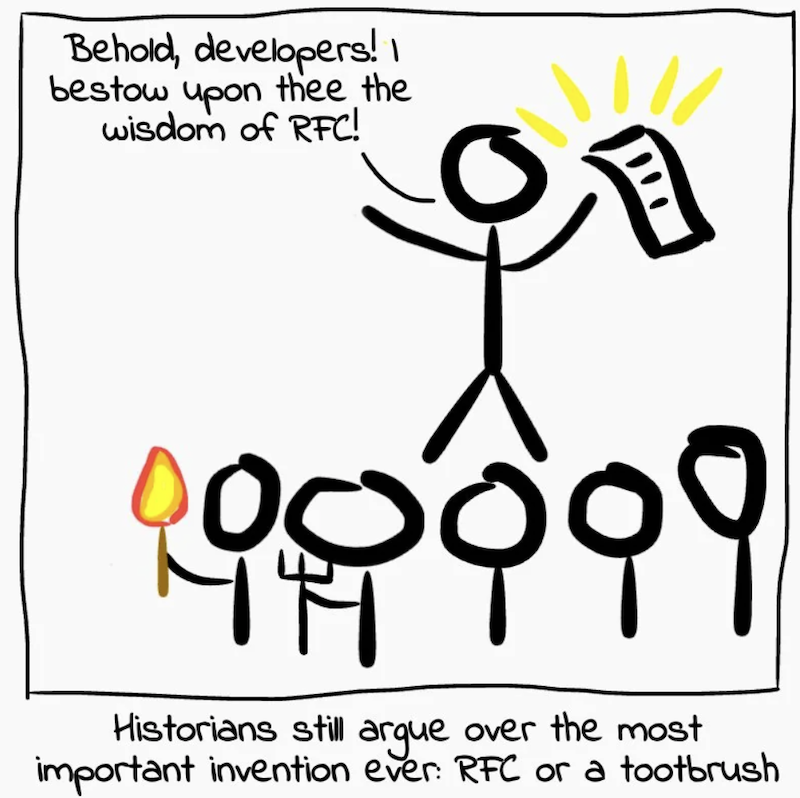 Behold, developers! I
bestow upon thee the
wisdom of RFC!
Historians still argue over the most
important invention ever: RFC or a tootbrush